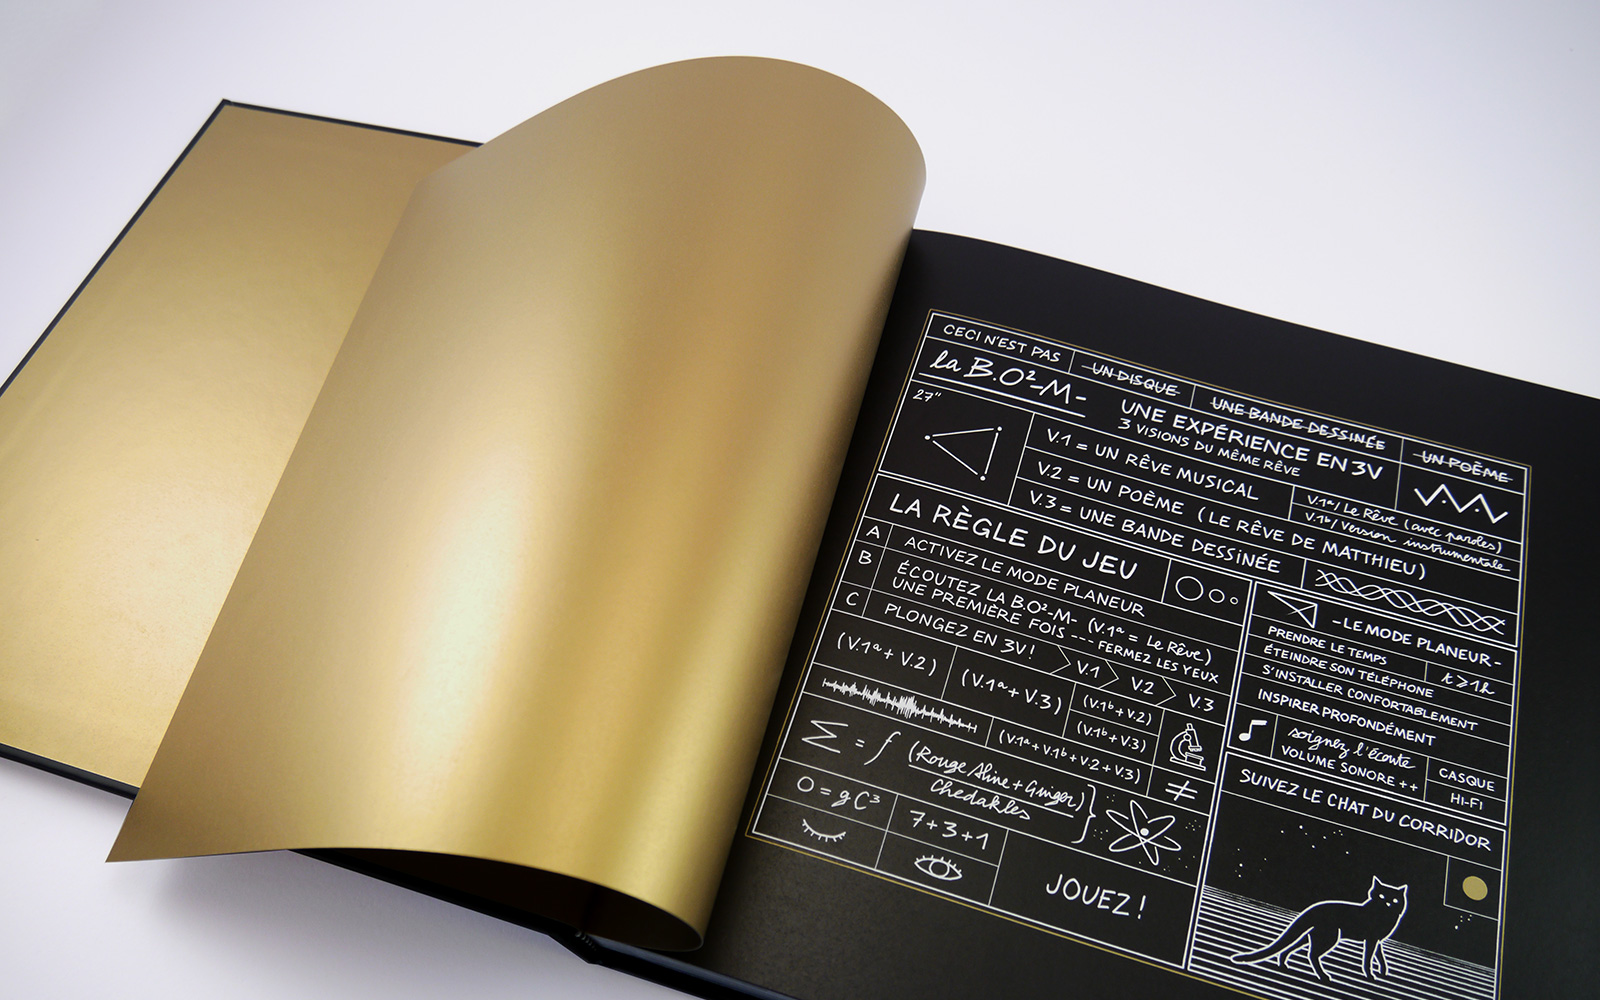 CECI N'EST PAS
UN DISQUE
UNE BANDE DESSINÉE
UN POÈME
la B.O²-M-
UNE EXPÉRIENCE EN 3V
3 VISIONS DU MÊME RÊVE
27"
V.1 = UN RÊVE MUSICAL
V.1ª/ Le Rêve (avec paroles)
V.1ᵇ/ Version instrumentale
V.2 = UN POÈME (LE RÊVE DE MATTHIEU)
V.3 = UNE BANDE DESSINÉE
LA RÈGLE DU JEU
A ACTIVEZ LE MODE PLANEUR
B ÉCOUTEZ LA B.O²-M- (V.1ª = Le Rêve)
UNE PREMIÈRE FOIS ---- FERMEZ LES YEUX
C PLONGEZ EN 3V! V.1 V.2 V.3
(V.1ª + V.2)
(V.1ª + V.3)
(V.1ᵇ + V.2)
(V.1ᵇ + V.3)
(V.1ª + V.1ᵇ + V.2 + V.3)
≠
Σ = f (Rouge Aline + Ginger)
Chedakles
O = g C³
7+3+1
JOUEZ!
-LE MODE PLANEUR-
PRENDRE LE TEMPS
ÉTEINDRE SON TÉLÉPHONE
t ⩾ 1h
S'INSTALLER CONFORTABLEMENT
INSPIRER PROFONDÉMENT
soignez l'écoute
VOLUME SONORE ++
CASQUE
HI-FI
SUIVEZ LE CHAT DU CORRIDOR